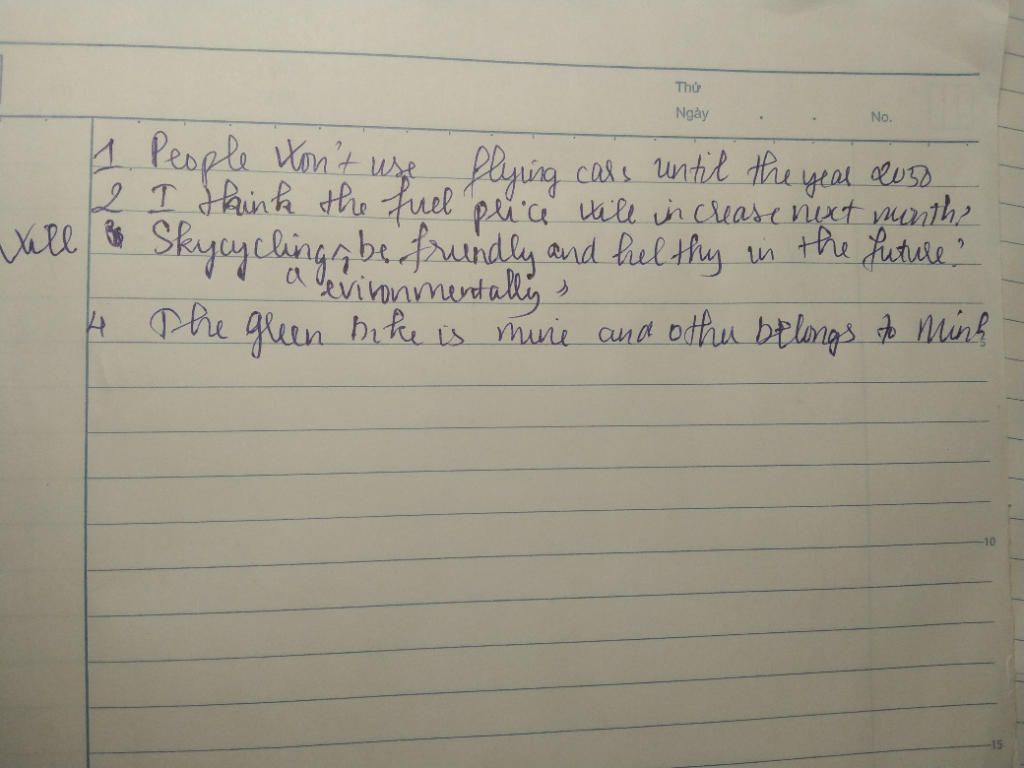 Thứ
Ngày . . No.
1. People won't use flying cars until the year 2050
2 I think the fuel price will increase next month.
will 3 Skycycling, be friendly and helthy in the future.
a evironmentally
4 The green bike is mine and other belongs to Minh
10
15